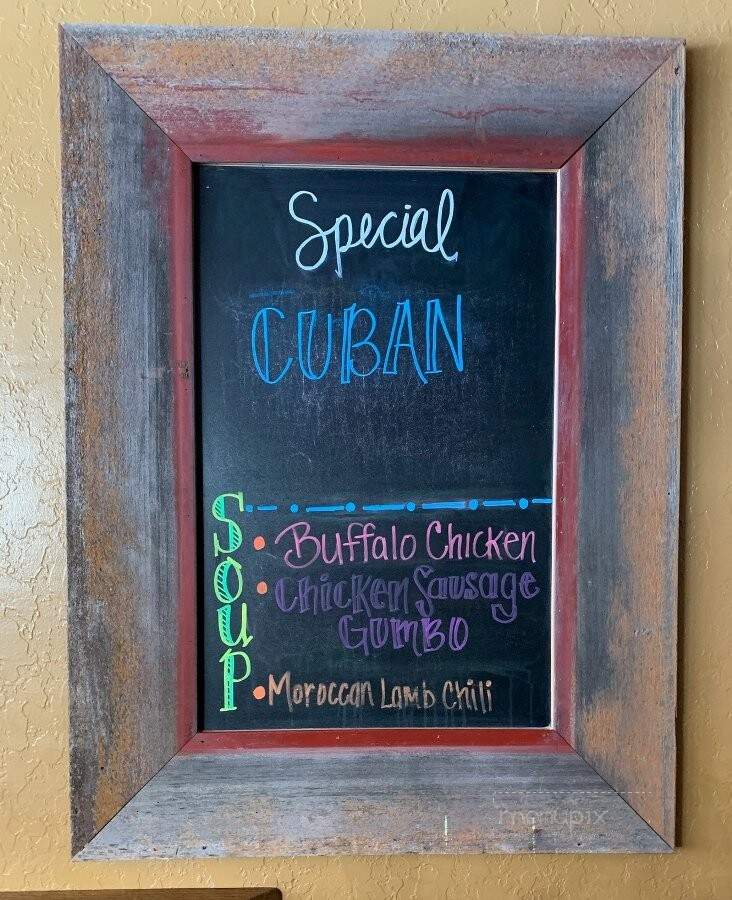 Special
CUBAN
SOUP
• Buffalo Chicken
• Chicken Sausage
Gumbo
• Moroccan Lamb Chili
menupix